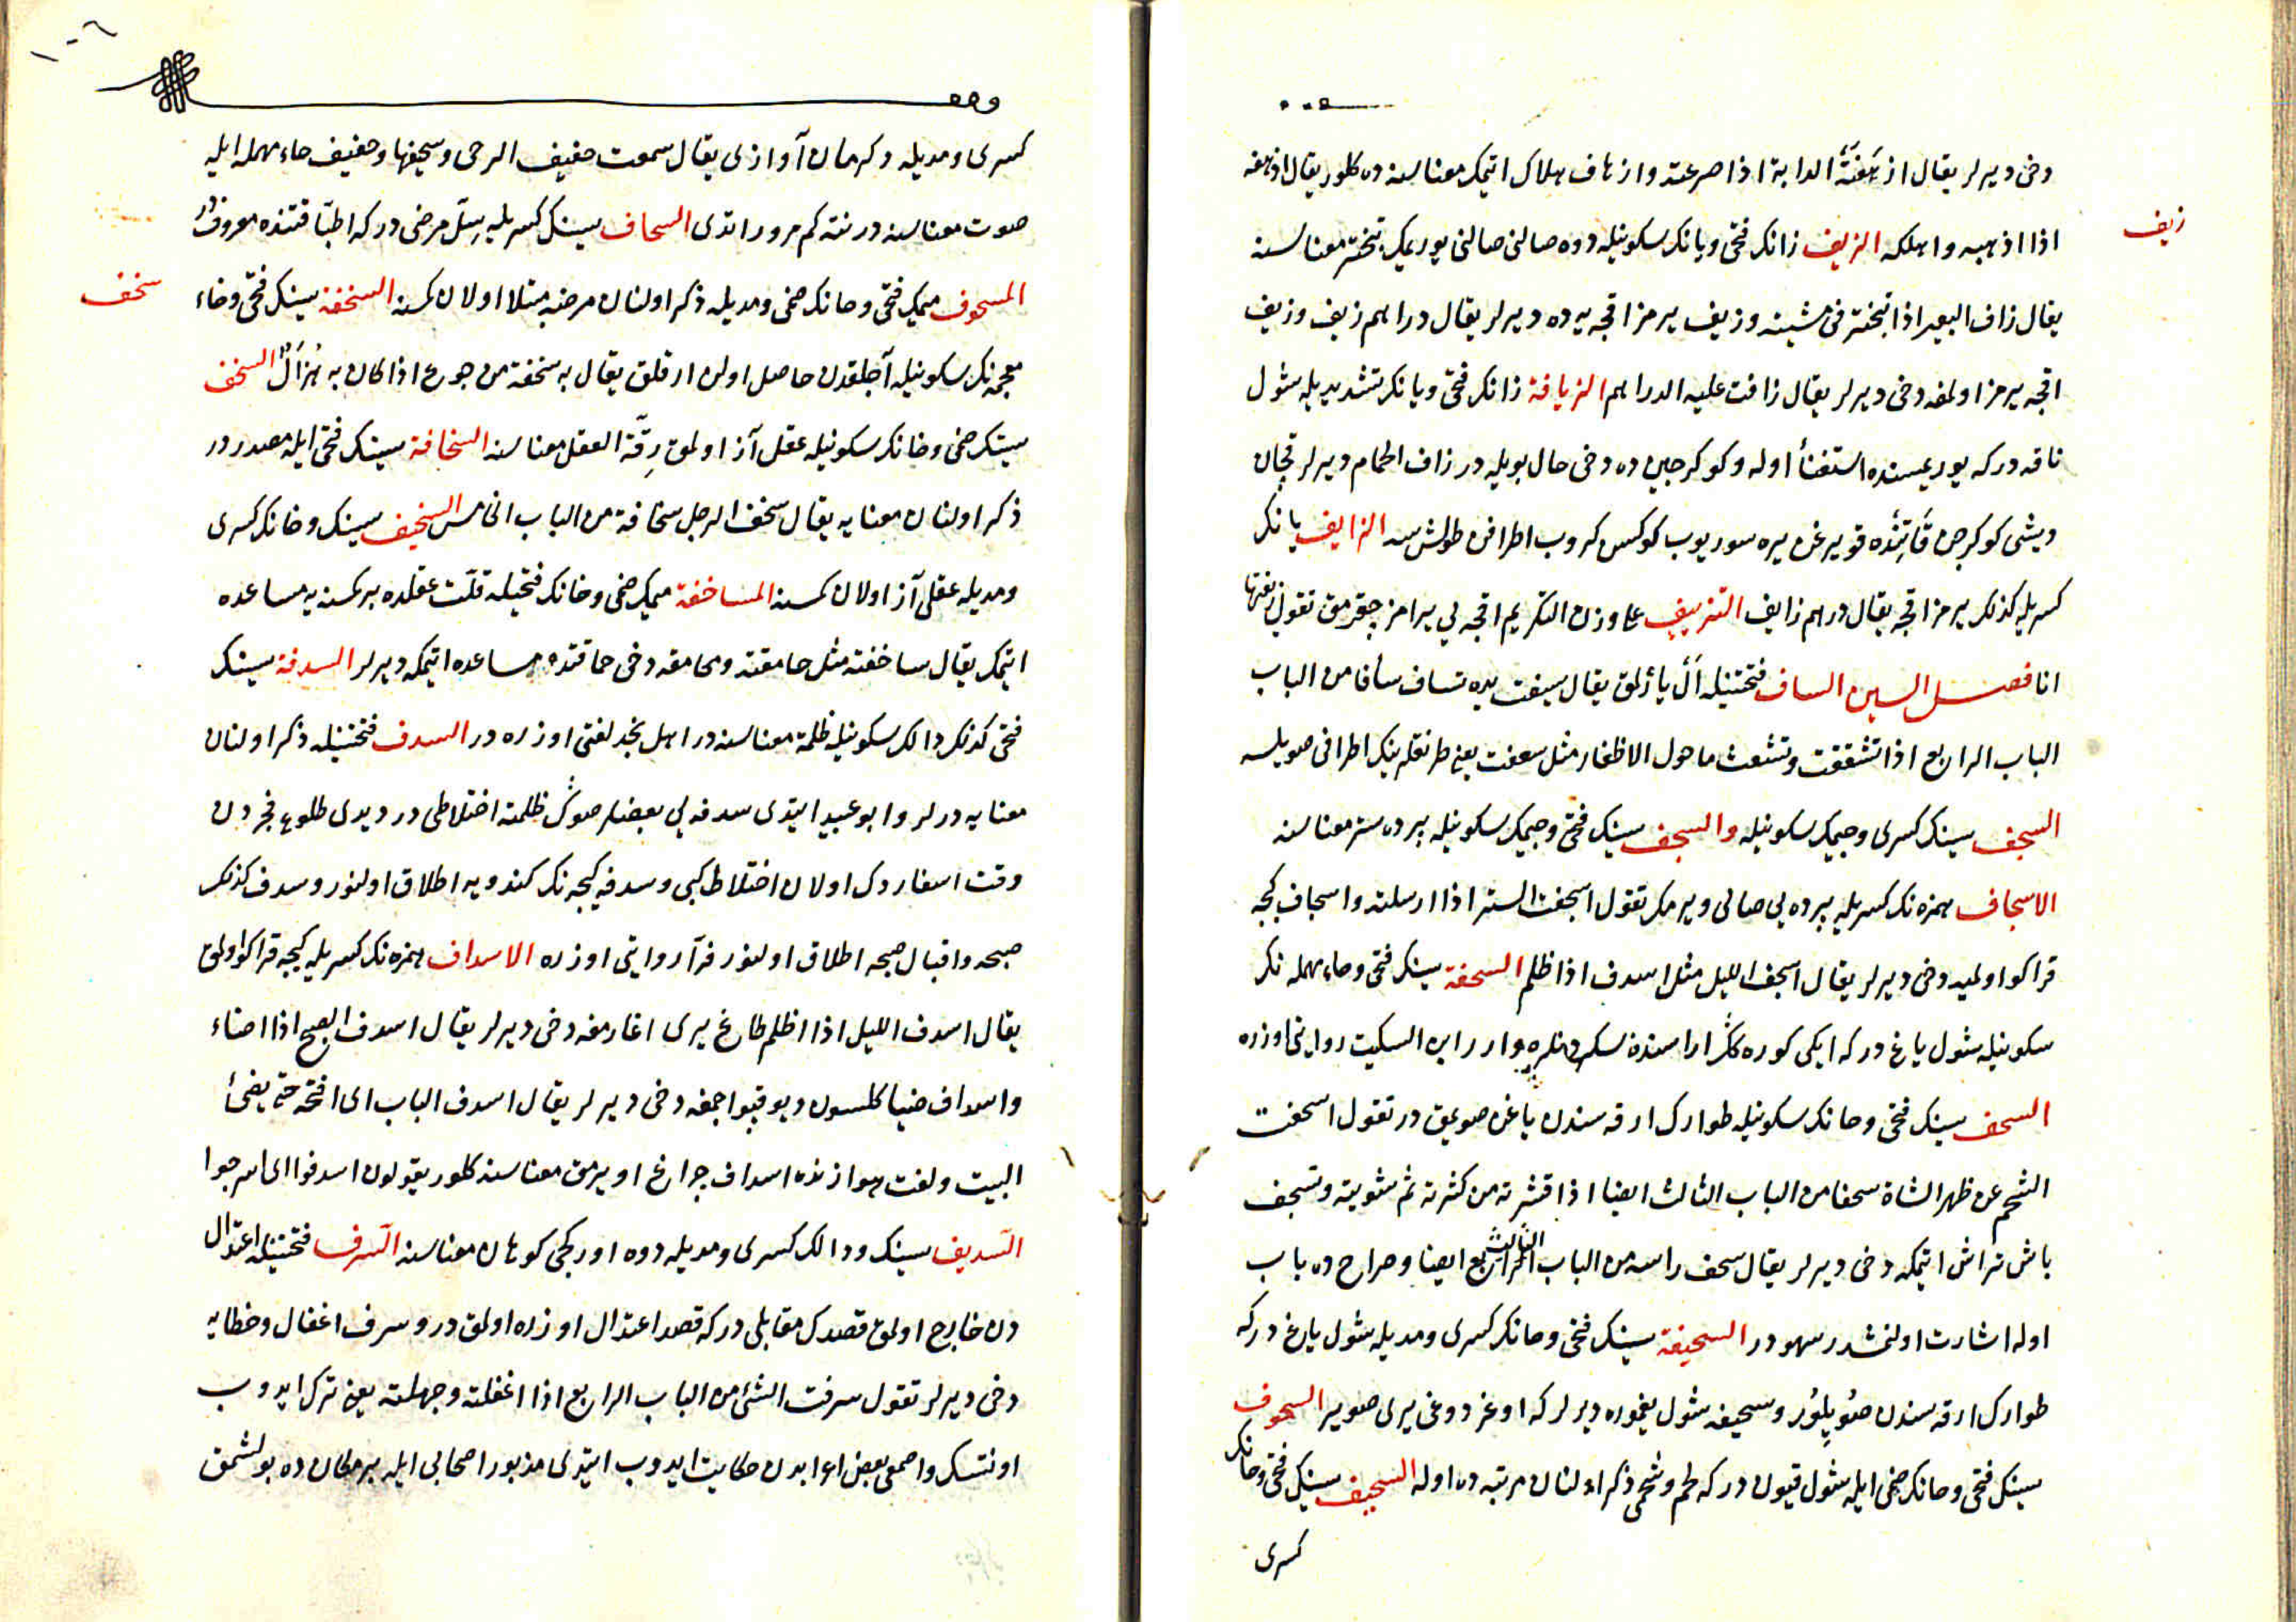 دخى ديرلر يقال ازهفته الدابة اذا صرعته وازهاف هلاك اتمك معناسنه ده كلور يقال ازهفه
زيف
اذا اذهبه واهلكه الزيف زانك فتحى ويانك سكونيله دوه صالنى صالنى يوريمك تبختر معناسنه
يقال زاف البعير اذا تبختر فى مشيته وزيف يرمز اقچه يه ده ديرلر يقال دراهم زيف وزيف
اقچه يرمز اولمغه دخى ديرلر يقال زافت عليه الدراهم الزيافة زانك فتحى ويانك تشديديله شول
ناقه دركه يوريمسنده استغنأ اوله وكوكرجين ده دخى حال بويله در زاف الحمام ديرلر قچان
ديشى كوكرجن قاتنده قويرغن يره سوريوب كوكس كروب اطرافن طولشسه الزايف يانك
كسريله كذلك يرمز اقچه يقال درهم زايف التزييف على وزن التكريم اقچه يى يرامز چقرمق تقول زيفتها
انا فصل السين الساف فتحتيله ال يارلمق يقال سيفت يده تساف سأفا من الباب
الباب الرابع اذا تشققت وتشعث ما حول الاظفار مثل سعفت يعنى طرنقلرينك اطرافى صويلسه
السجف سينك كسرى وجيمك سكونيله والسجف سينك فتحى وجيمك سكونيله پرده ستر معناسنه
الاسجاف همزه نك كسريله پرده يى صالى ويرمك تقول اسجفت الستر اذا ارسلته واسجاف كيجه
قراكو اولميه دخى ديرلر يقال اسجف الليل مثل اسدف اذا ظلم السحفة سينك فتحى وحاء مهمله نك
سكونيله شول ياغ دركه ايكى كوره كلر اراسنده در ابن السكيت روايتى اوزره
السحف سينك فتحى وحانك سكونيله طوارك ارقه سندن ياغن صويمق در تقول اسحفت
الشحم عن ظهر الشاة سحفا من الباب الثالث ايضا اذا قشرته من كثرته ثم شويته وتسحف
باش تراش اتمكه دخى ديرلر يقال سحف راسه من الباب الثالث الرابع ايضا وصراح ده باب
اوله اشارت اولنمشدر سهودر السحيفة سينك فتحى وحانك كسرى ومديله شول ياغ دركه
طوارك ارقه سندن صويلور وسحيفه شول يغموره ديرلر كه اوغردوغى يرى صويير السحوف
سينك فتحى وحانك ضمى ايله شول قيون دركه لحم وشحمى ذكر اولنان مرتبه ده اوله السحيف سينك فتحى وحانك
كسرى
١٠٦
كسرى ومديله دكرمان آوازى يقال سمعت حفيف الرحى وسحيفها وحفيف حاء مهمله ايله
صوت معناسنه در نته كم مرور اتدى السحاف سينك كسريله سل مرضى دركه اطبا قتنده معروفدر
المسحوف ميمك فتحى وحانك ضمى ومديله ذكر اولنان مرضه مبتلا اولان كمسنه السخفة سينك فتحى وخاء
سخف
معجمه نك سكونيله آجلقدن حاصل اولن ارقلق يقال به سخفة من جوع اذا كان به هزال السخف
سينك ضمى وخانك سكونيله عقل آز اولمق رقة العقل معناسنه السخافة سينك فتحى ايله مصدردر
ذكر اولنان معنايه يقال سخف الرجل سخافة من الباب الخامس السخيف سينك وخانك كسرى
ومديله عقلى آز اولان كمسنه المساخفة ميمك ضمى وخانك فتحيله قلت عقلده بر كمسنه يه مساعده
اتمك يقال ساخفته مثل حامقته ومحامقه دخى حماقتده مساعده اتمكه ديرلر السدفة سينك
فتحى كذلك دالك سكونيله ظلمة معناسنه در اهل نجد لغتى اوزره در السدف فتحتيله ذكر اولنان
معنايه درلر وابو عبيد ايتدى سدفه يى بعضلر ضوئله ظلمته اختلاطى در ديدى طلوع فجردن
وقت اسفاردك اولان اختلاط كبى وسدفه كيجه نك كندويه اطلاق اولنور وسدف كذلك
صبحه واقبال صبحه اطلاق اولنور فرآ روايتى اوزره الاسداف همزه نك كسريله كيجه قراكو اولمق
يقال اسدف الليل اذا اظلم طاڭ يرى اغارمغه دخى ديرلر يقال اسدف الصبح اذا اضاء
واسداف ضيا كلسون ديو قپو اچمغه دخى ديرلر يقال اسدف الباب اى افتحه حتى يضئ
البيت ولغت هوازنده اسداف چراغ اويرمق معناسنه كلور يقولون اسدفوا اى اسرجوا
السديف سينك ودالك كسرى ومديله دوه اوركجى كوهان معناسنه السرف فتحتيله اعتدال
دن خارج اولمق قصدك مقابلى دركه قصد اعتدال اوزره اولمق در وسرف اغفال وخطايه
دخى ديرلر تقول سرفت الشئ من الباب الرابع اذا اغفلته وجهلته يعنى ترك ايدوب
اونتسك واصمعى بعض اعرابدن حكايت ايدوب ايتدى مذبور اصحابى ايله بر مكان ده بولشمق